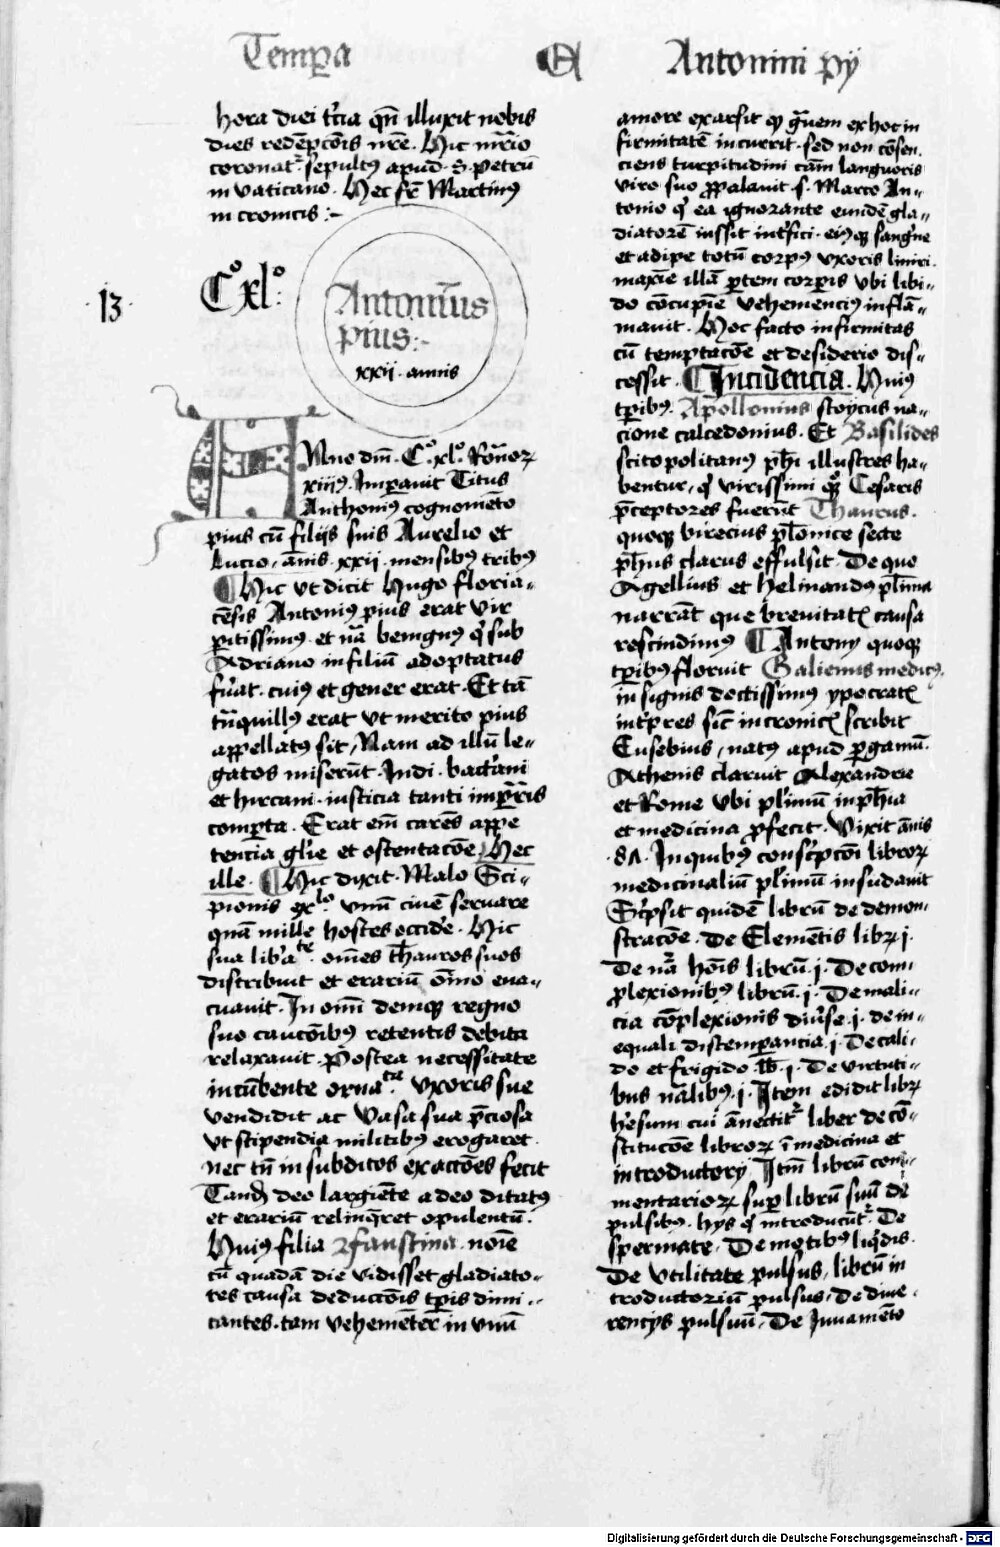 Tempa A Antonini pij
hora diei t'cia qn̄ illuxit nobis
dies redēpcōis nr̄e. Hic mr̄rio
coronat᷑ sepultꝰ apud S. petrū
in vaticano. Hec fr̄ Martinꝰ
in cronicis :-
.13.
C°xl°:
Antoniūs
pius:-
xxij annis
Anno dm̄. C°.xl°. Rōnoꝝ
xiiijꝰ. Impauit Titus
Anthoniꝰ cognomēto
pius cū filijs suis Aurelio et
Lucio. ānis. xxij. mensibꝰ tribꝰ
¶ Hic vt dicit Hugo floria-
cēsis Antoniꝰ pius erat vir
pitissimꝰ et nā benignꝰ q' sub
Adriano in filiū adoptatus
fu'at. cuiꝰ et gener erat. Et tā
tn̄quillꝰ erat vt merito pius
appellatꝰ sit, Nam ad illū le-
gatos miserūt Indi. bact'ani
et hircani. iusticia tanti impr̄is
compta. Erat em̄ carēs appe
tencia gl'ie et ostentacōe Hec
ille. ¶ Hic dixit. Malo Sci-
pionis exlo vnū ciuē seruare
quā mille hostes occide'. Hic
sua lib'ate. om̄es th̄auros suos
distribuit et erariū om̄o eua-
cuauit. In omī deniqꝫ regno
suo caucōibꝰ retentis debita
relaxauit. Postea necessitate
incūbente ornata. vxoris sue
vendidit ac vasa sua p̄ciosa
vt stipendia militibꝰ erogaret.
nec tn̄ in subditos exaccōes fecit
Tandē deo largiēte adeo ditatꝰ
et erariū relinq̄ret opulentū.
Huiꝰ filia faustina. noīe
cū quadā die vidisset gladiato-
res causa deduccōis tpis dimi-
cantes. tam vehemēter in vnū
amore exarsit qꝫ gūem ex hoc in
firmitatē incurrit. sed non cōsen
ciens turpitudini cām languoris
viro suo ppalauit. s. Marco An-
tonio q' ea ignorante eundē gla-
diatorē iussit int'fici. eiꝰqꝫ sang'ne
et adipe totū corpꝰ vxoris liniri.
maxie illā ptem corpis vbi libi-
do cōcupīe vehemenciꝰ inflā-
mauit. Hoc facto infirmitas
cū temptacōe et desiderio dis-
cessit. ¶ Incidencia. Huiꝰ
tpibꝰ. Apollonius stoycus na-
cione calcedonius. Et Basilides
scitopolitanꝰ ph̄i illustres ha-
bentur, q' virissimi Cesaris
p̄ceptores fuerūt Thaurus.
quoqꝫ virecius pl̄onice secte
ph̄us clarus effulsit. De quo
Agellius et helinandꝰ pl'ima
narrāt que breuitatꝭ causa
rescindimꝰ ¶ Antonij quoqꝫ
tpibꝰ floruit Galienus medicꝰ.
insignis doctissimꝰ ypocratꝭ
int'pres sic̄ in cronicꝭ scribit
Eusebius, natꝰ apud pgamū.
Athenis claruit Alexandrie
et Rome vbi pl'imū in ph̄ia
et medicina profecit. Vixit ānis
.87. In quibꝰ consc'pcōi libroꝝ
medicinaliū pl'imū insudauit
Sc'psit quidē librū de demon-
stracōe. De Elemētis libꝝ j.
De nā hoīs librū. j. De com-
plexionibꝰ librū. j. De mali-
cia cōplexionis diu'se. j. de in-
equali distempancia. j. De cali-
do et frigido. lib̄. j. De virtuti-
bus nālibꝰ. j. Item edidit libꝝ
h'esum cui ānectit᷑ liber de cō-
stitucōe libroꝝ ī medicina et
introductorij Itm̄ librū com-
mentarioꝝ sup librū suū de
pulsibꝰ. hijs q' introducūt᷑. De
spermate. De motibꝰ liq'dis.
De vtilitate pulsus, librū in
troductoriū pulsus. De diue-
rencijs pulsuū. De Iuuamēto
Digitalisierung gefördert durch die Deutsche Forschungsgemeinschaft - DFG